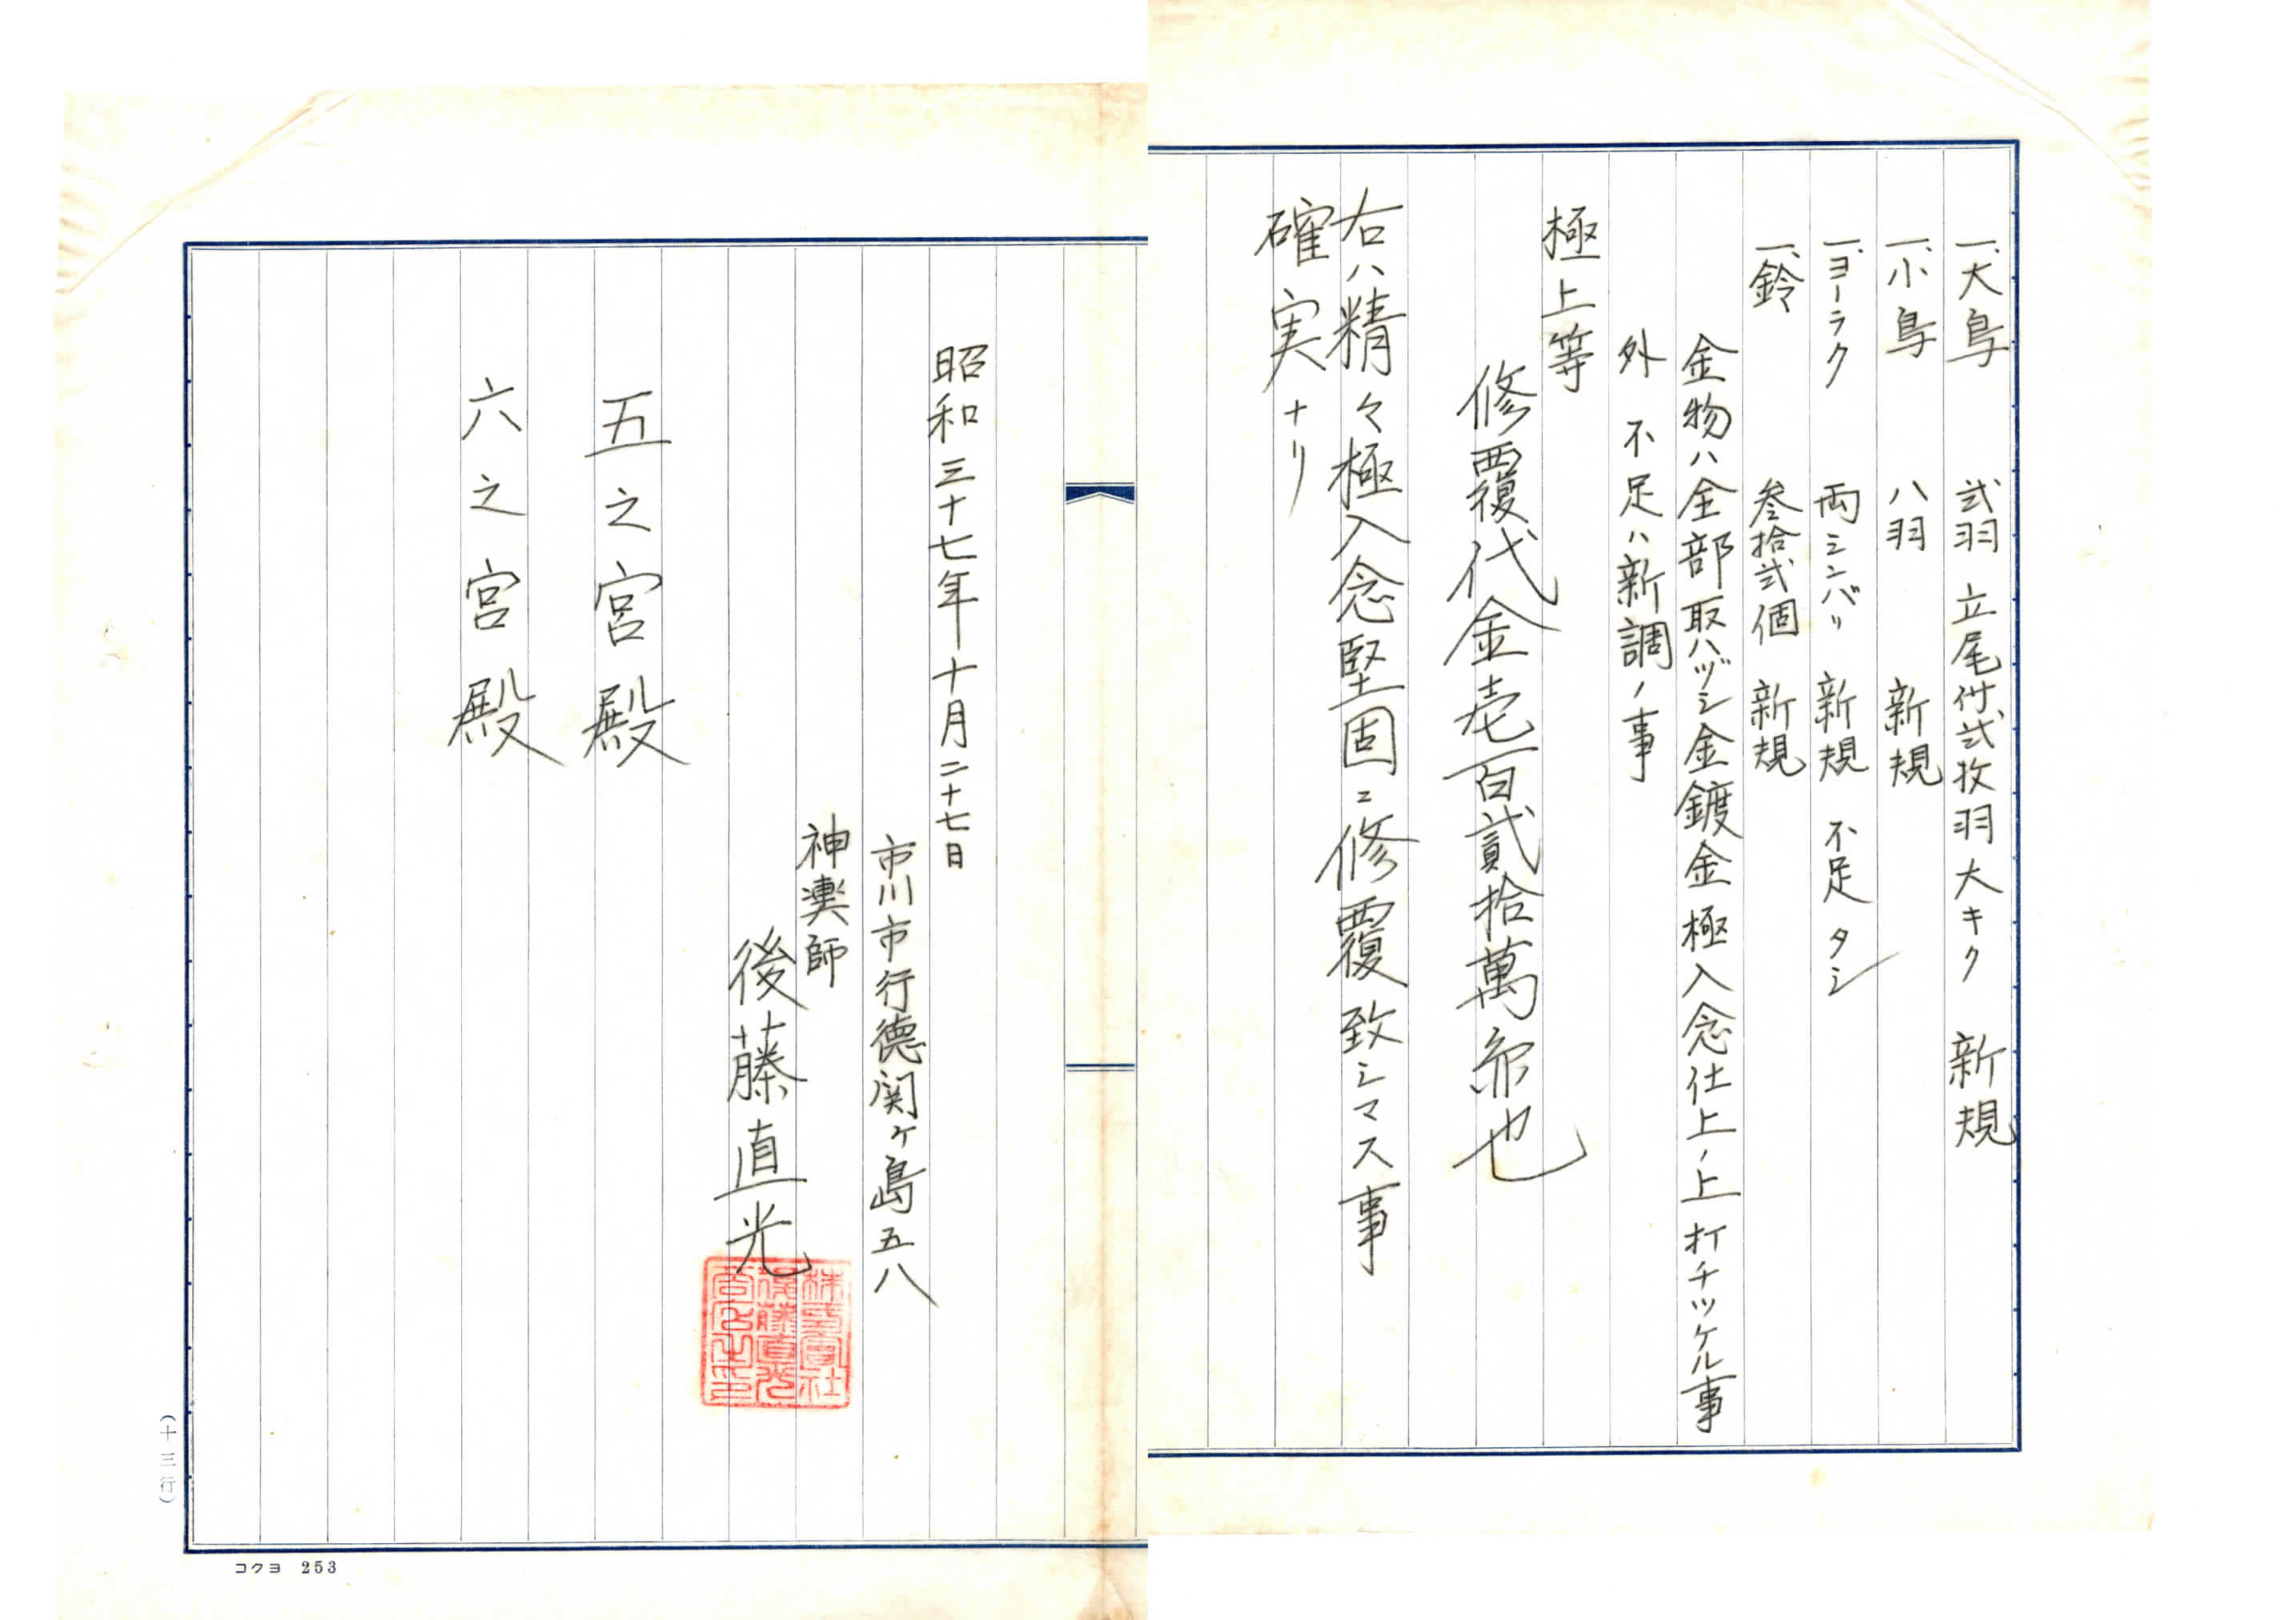 一、大鳥 弐羽 立尾付弐枚羽大キク 新規
一、小鳥 八羽 新規
一、ヨーラク 両シンバリ 新規 不足タシ
一、鈴 参拾弐個 新規
金物ハ全部取ハヅシ金鍍金極入念仕上ノ上打チツケル事
外 不足ハ新調ノ事
極上等
修覆代金壱百貳拾萬円也
右ハ精々極入念堅固ニ修覆致シマス事
確実ナリ
昭和三十七年十月二十七日
市川市行徳関ケ島五八
神輿師
後藤直光
株式会社
後藤直光
之印
五之宮殿
六之宮殿
(十三行)
コクヨ 253